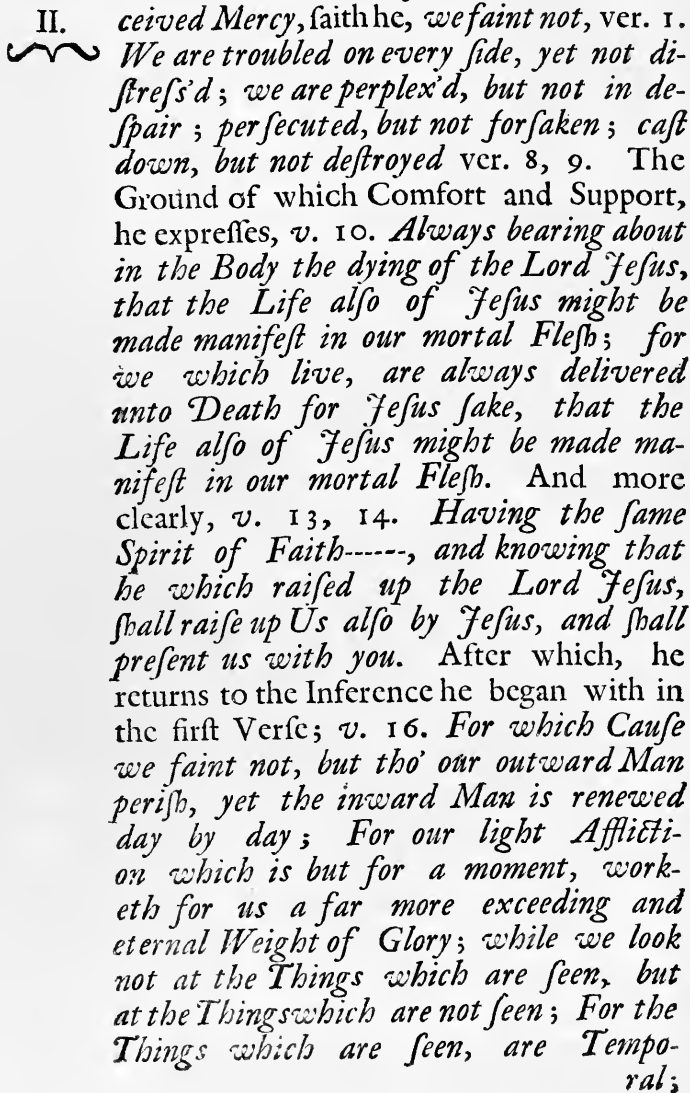 II.
ceived Mercy, ſaith he, we faint not, ver. 1.
We are troubled on every ſide, yet not di-
ſtreſs'd; we are perplex'd, but not in de-
ſpair ; perſecuted, but not forſaken ; caſt
down, but not deſtroyed ver. 8, 9. The
Ground of which Comfort and Support,
he expreſſes, v. 10. Always bearing about
in the Body the dying of the Lord Jeſus,
that the Life alſo of Jeſus might be
made manifeſt in our mortal Fleſh; for
we which live, are always delivered
unto Death for Jeſus ſake, that the
Life alſo of Jeſus might be made ma-
nifeſt in our mortal Fleſh. And more
clearly, v. 13, 14. Having the ſame
Spirit of Faith------, and knowing that
he which raiſed up the Lord Jeſus,
ſhall raiſe up Us alſo by Jeſus, and ſhall
preſent us with you. After which, he
returns to the Inference he began with in
the firſt Verſe; v. 16. For which Cauſe
we faint not, but tho' our outward Man
periſh, yet the inward Man is renewed
day by day ; For our light Afflicti-
on which is but for a moment, work-
eth for us a far more exceeding and
eternal Weight of Glory; while we look
not at the Things which are ſeen, but
at the Things which are not ſeen ; For the
Things which are ſeen, are Tempo-
ral;